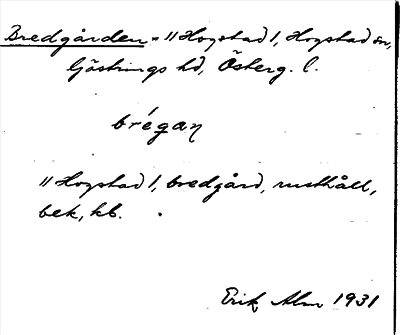 Bredgården = "Hogstad 1, Hogstad sn,
Göstrings hd, Österg. l.
brégan
"Hogstad 1, bredgård, rusthåll,
bek, kb.
Erik Alm 1931